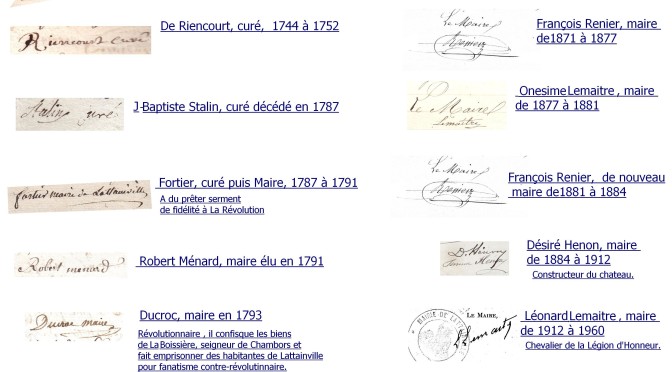 Riencourt curé
De Riencourt, curé, 1744 à 1752
Stalin curé
J-Baptiste Stalin, curé décédé en 1787
fortier maire de Lattainville
Fortier, curé puis Maire, 1787 à 1791
A du prêter serment
de fidélité à La Révolution
Robert ménard
Robert Ménard, maire élu en 1791
Ducroc maire
Ducroc, maire en 1793
Révolutionnaire , il confisque les biens
de La Boissière, seigneur de Chambors et
fait emprisonner des habitantes de Lattainville
pour fanatisme contre-révolutionnaire.
Le Maire
Renier
François Renier, maire
de1871 à 1877
Le Maire
Lemaitre
Onesime Lemaitre , maire
de 1877 à 1881
Le Maire
Renier
François Renier, de nouveau
maire de1881 à 1884
D. Hénon
Désiré Henon, maire
de 1884 à 1912
Constructeur du chateau.
MAIRIE DE
LE MAIRE,
L Lemaitre
Léonard Lemaitre , maire
de 1912 à 1960
Chevalier de la Légion d'Honneur.